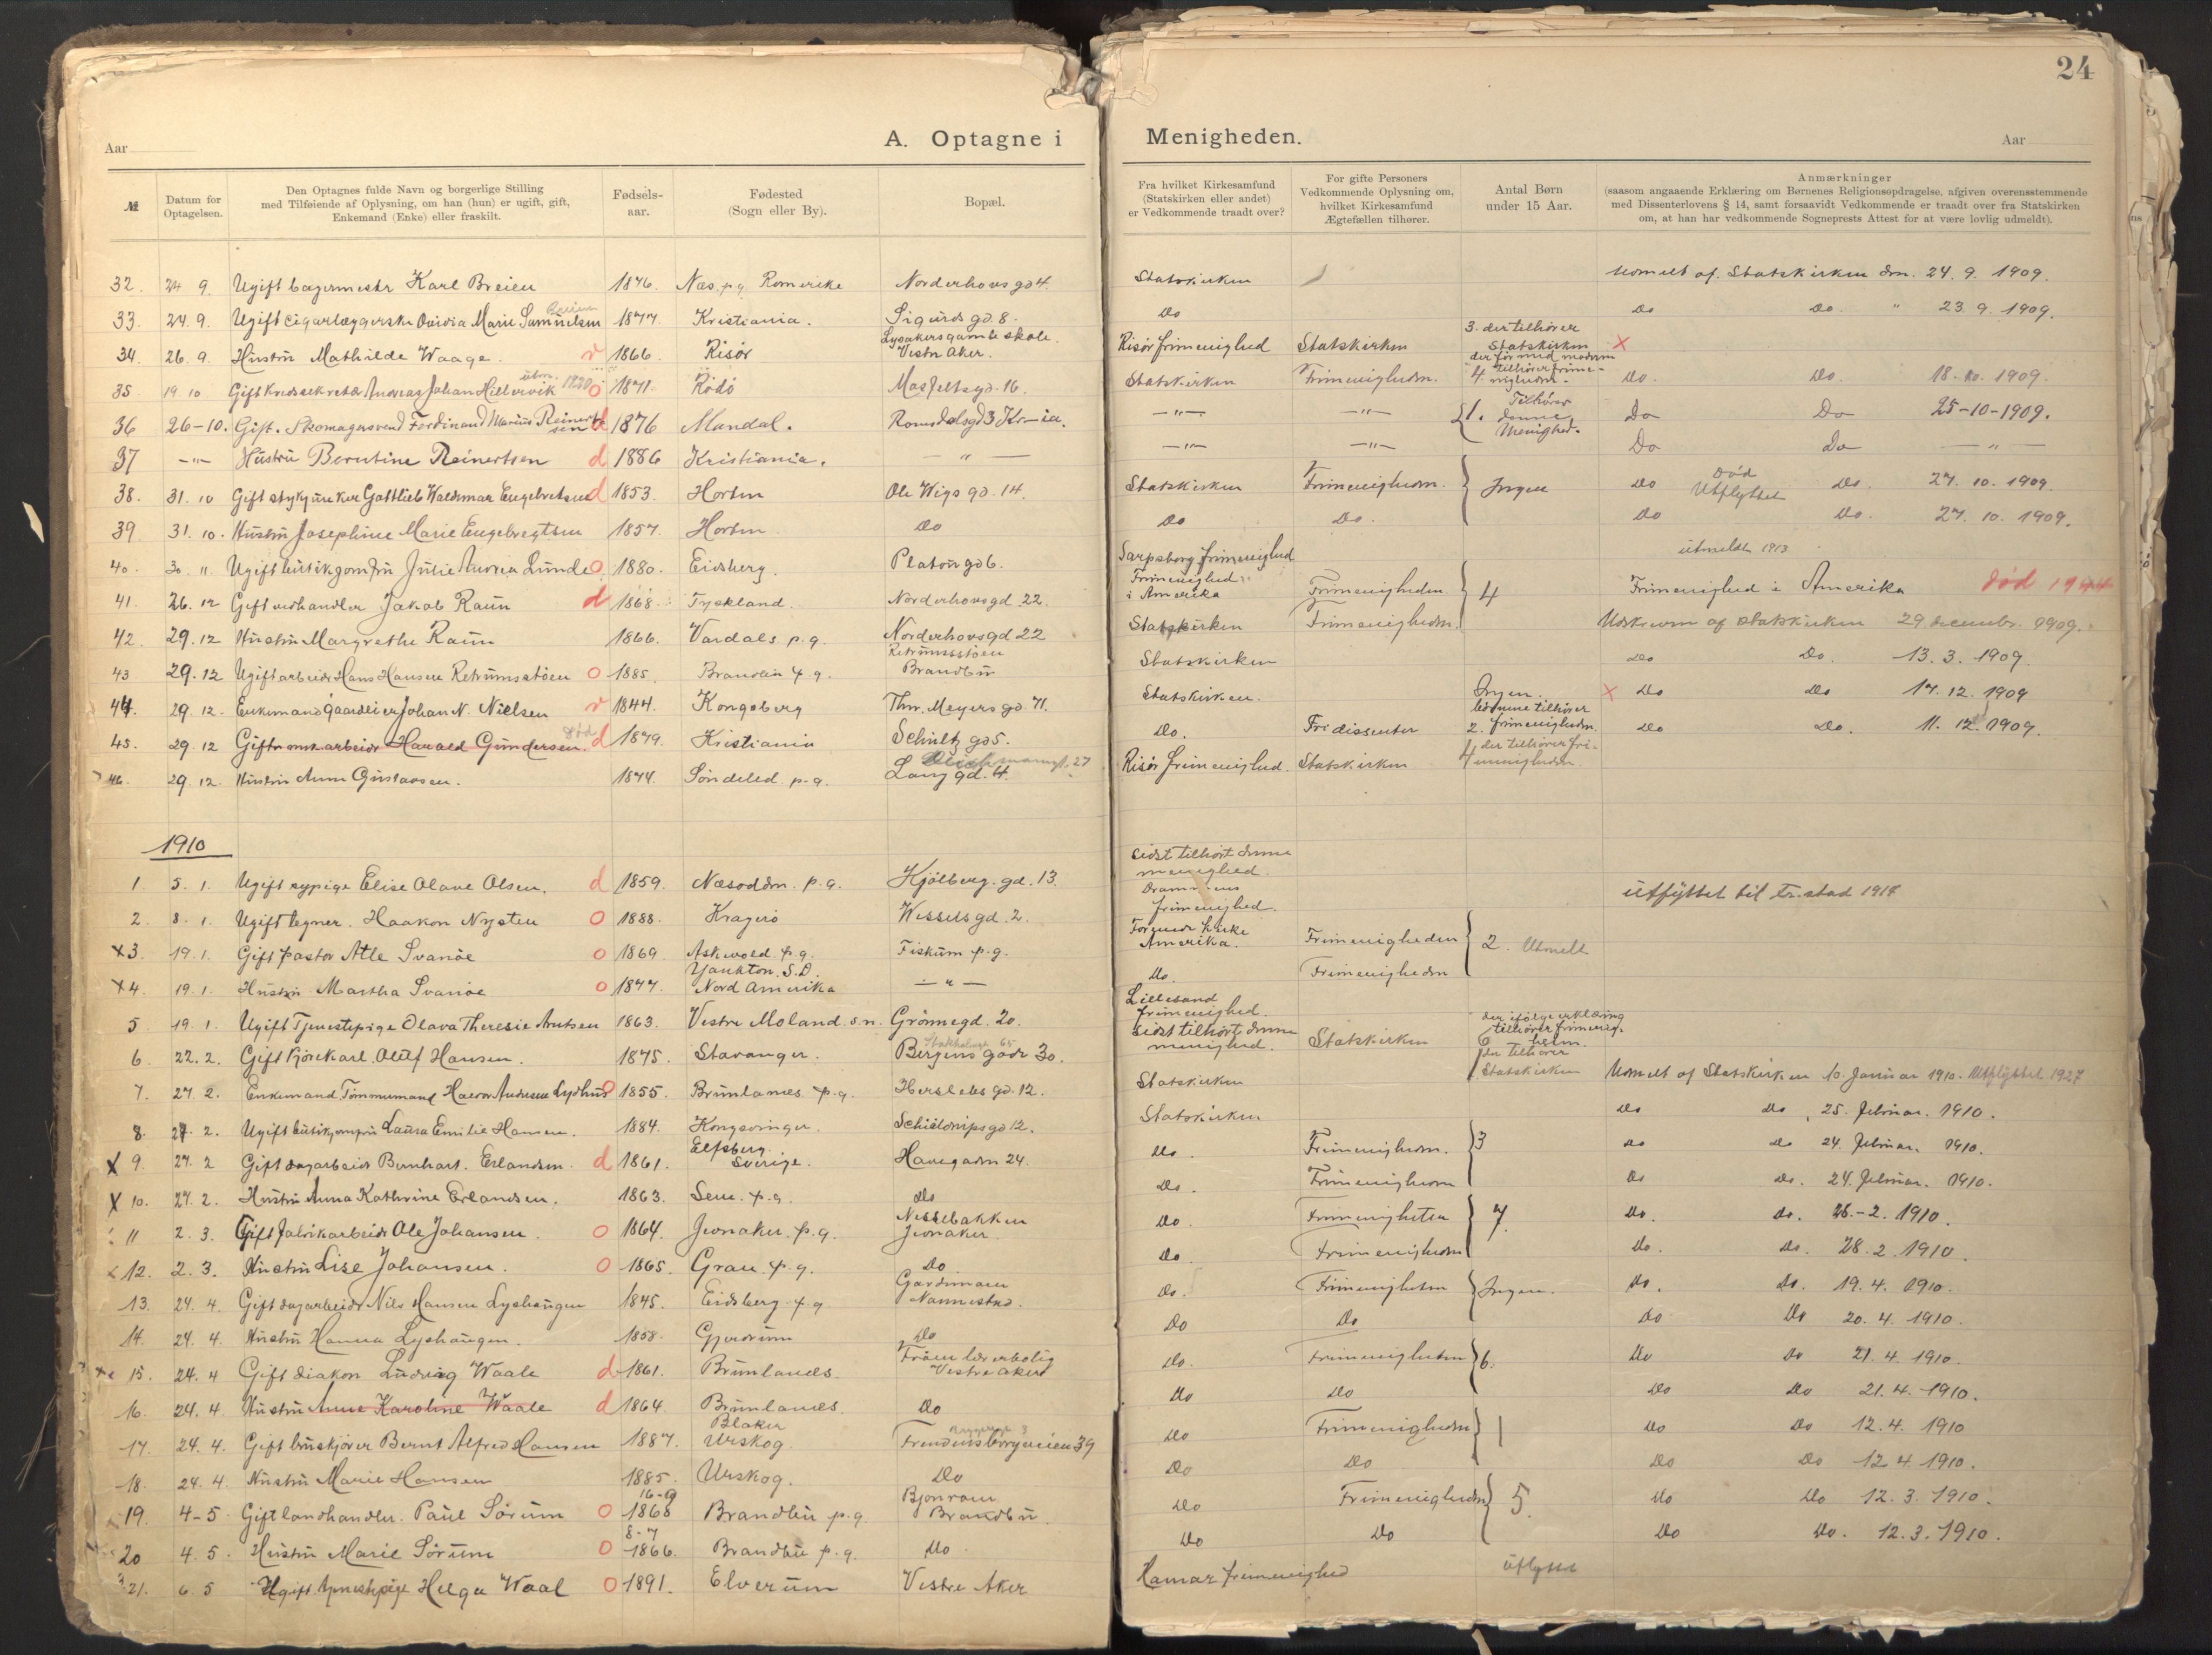 24
A. Optagne i Menigheden.
Aar
Aar
№
Datum for Optagelsen.
Den Optagnes fulde Navn og borgerlige Stilling
med Tilføiende af Oplysning, om han (hun) er ugift, gift,
Enkemand (Enke) eller fraskilt.
Fødselsaar.
Fødested
(Sogn eller By).
Bopæl.
Fra hvilket Kirkesamfund
(Statskirken eller andet)
er Vedkommende traadt over?
For gifte Personers
Vedkommende Oplysning om,
hvilket Kirkesamfund
Ægtefællen tilhører.
Antal Børn
under 15 Aar.
Anmærkninger
(saasom angaaende Erklæring om Børnenes Religionsopdragelse, afgiven overensstemmende
med Dissenterlovens § 14, samt forsaavidt Vedkommende er traadt over fra Statskirken
om, at han har vedkommende Sogneprests Attest for at være lovlig udmeldt).
32. 24 9. Ugift bagermestr Karl Breien 1876. Næs p.g. Romerike Norderhovsgd 4. Statskirken Udmeldt af Statskirken den 24. 9. 1909.
33. 24. 9. Ugift cigarlæggerske Ovidia Marie Samuelsen 1877. Kristiania. Sigurds gd. 8. Do Do Do. " 23. 9. 1909.
34. 26. 9. Hustru Mathilde Waage. v 1866. Risör Lysakers gamle skole. Vestr Aker. Risör frimenighed Statskirken 3. der tilhörer Statskirken X
35 19 10. Gift Andreas Johan Hillervik 1920 o 1871. Rödö 16. Statskirken Frimenigheden. 4 tilhörer frimenigheden. Do. Do. 18-10. 1909.
36 26-10. Gift. Skomagersvend Ferdinand Marius Reinertsen d 1876 Mandal. Romsdalsgd 3 Kr-ia. —"— —"— 1. Tilhører denne Menighed. Do Do 25-10-1909.
37 —"— Hustru Berntine Reinertsen d 1886 Kristiania. —"— —"— —"— Do Do —"—
38. 31. 10 Gift Gottlieb Waldemar Engebretsen d 1853. Horten Ole Wigs gd. 14. Statskirken Frimenigheden. Ingen Do Död Utflyttet Do. 27. 10. 1909.
39 31. 10. Hustru Josephine Marie Engebregtsen 1857. Horten Do Do Do. Do Do. 27. 10. 1909.
40. 30. 11. Ugift butikjomfru Julie Andrea Lunde o 1880. Eidsberg. Platous gd 6. Sarpsborg frimenighed utmeldt 1913
41. 26. 12 Gift vedhandler Jakob Raun d 1868. Tyskland. Norderhovsgd. 22. Frimenighed i Amerika Frimenigheden 4 Frimenighed i Amerika död
42. 29. 12 Hustru Margrethe Raun 1866. Vardals p.g. Norderhovsgd 22 Statskirken Frimenigheden. Udskreven af statskirken 29 decembr. 1909.
43 29. 12 Ugift arbeider Hans Hansen Retrumsstöen o 1885. Brandbu p.g. Retrumsstöen Brandbu Statskirken Do Do. 13. 3. 1909.
44. 29. 12. Enkemand gaardeier Johan N. Nielsen v 1844. Kongsberg Thv. Meyers gd 71. Statskirken. Ingen. X Do Do 17. 12. 1909
45. 29. 12 Gift arbeidr Harald Gundersen. död d 1879. Kristiania Schultz gd 5. Do. Fri dissenter 2. tilhörer frimenigheden. Do Do. 11. 12. 1909.
46. 29. 12. Hustru Anna Gustavsen. 1874. Söndeled p.g. Lang gd. 4. 27 Risör frimenighed. Statskirken 4 der tilhörer frimenigheden.
1910
1. 5. 1. Ugift sypige Elise Olave Olsen. d 1859. Næsodden. p.g. Kjölberg. gd. 13. sidst tilhört denne menighed.
2. 8. 1. Ugift tegner. Haakon Nysten o 1888. Kragerö Wessels gd. 2. Drammens frimenighed. utflyttet til Fr.stad 1918
x3. 19. 1. Gift pastor Atle Svanöe o 1869. Askvold p.g. Fiskum p.g. Amerika. Frimenigheden 2. Utmeldt
x4. 19. 1. Hustru Martha Svanöe o 1877. Yankton. S.D. Nord Amerika —"— Do. Frimenigheden
5 19. 1. Ugift Tjenestepige Olava Theresie Arntsen 1863. Vestre Moland. s.n. Grönnegd. 20. Lillesand frimenighed.
6. 22. 2. Gift Oluf Hansen. 1875. Stavanger. Bergens gade 30. sidst tilhört denne menighed. Statskirken
7. 27. 2. Enkemand. Tömmermand Halvor Andersen Lydhus o 1855. Brunlanes p.g. Herslebs gd. 12. Statskirken Udmeldt af Statskirken 10. Januar 1910. Utflyttet 1927
8. 27. 2. Ugift butikjomfru Laura Emilie Hansen. 1884. Kongsvinger. 12. Statskirken Do Do. 25. februar. 1910.
X 9. 27. 2 Gift dagarbeidr Bernhart. Erlandsen. d 1861. Elfsberg. Sverige. Havegaden 24. Do. Frimenigheden. 3 Do Do 24. februar. 1910.
X 10. 27. 2. Hustru Anna Kathrine Erlandsen. 1863. Sem. p.g. Do Do. Frimenigheden Do Do. 24. februar. 1910.
11 2. 3. Gift fabrikarbeidr Ole Johansen. o 1864. Jevnaker. p.g. Nesselbakken Jevnaker Do. Frimenigheten 7. Do. Do. 26.-2. 1910.
12. 2. 3. Hustru Lise Johansen. o 1865. Gran. p.g. Do. Do. Frimenigheden Do. Do. 28. 2. 1910.
13. 24. 4. Gift dagarbeidr Nils Hansen Lyshaugen 1845. Eidsberg. p.g Gardmoen Nannestad. Do. Frimenigheten Ingen. Do. Do. 19. 4. 1910.
14. 24. 4. Hustru Hanna Lyshaugen. 1858. Gjerdrum Do Do Do Do Do 20. 4. 1910.
15. 24. 4 Gift diakon Ludvig Waale d 1861. Brunlanes. Fröen lærerbolig Vestre aker Do. Frimenigheten 6. Do Do 21. 4. 1910.
16. 24. 4. Hustru Anne Karoline Waale d 1864. Brunlanes. Do Do Do Do Do 21. 4. 1910.
17. 24. 4. Gift Bernt Alfred Hansen 1887. Blaker Urskog. Fredensborgveien 39 Do Frimenigheden 1 Do Do 12. 4. 1910
18. 24. 4. Hustru Marie Hansen 1885. Urskog. Do Do Do Do Do 12. 4. 1910.
19. 4-5. Gift landhandler. Paul Sörum o 16-9 1868 Brandbu p.g. Brandbu. Do Frimenigheden 5. Do Do 12. 3. 1910.
20 4. 5. Hustru Marie Sörum o 8-7 1866. Brandbu p.g. Do Do Do Do Do. 12. 3. 1910.
21. 6. 5 Ugift. tjenestepige Helga Waal o 1891. Elverum Vestre Aker Hamar frimenighed utflyttet